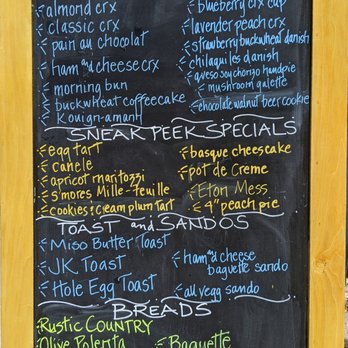 almond crx
classic crx
pain au chocolat
ham and cheese crx
morning bun
buckwheat coffeecake
Kouign-amann
blueberry crx cup
lavender peach crx
strawberry buckwheat danish
chilaquiles danish
queso soy chorizo handpie
mushroom galette
chocolate walnut beer cookie
SNEAK PEEK SPECIALS
egg tart
canele
apricot maritozzi
S'mores Mille-feuille
cookies & cream plum tart
basque cheesecake
pot de Creme
Eton Mess
4" peach pie
TOAST and SANDOS
Miso Butter Toast
JK Toast
Hole Egg Toast
ham and cheese
baguette sando
au vegg sando
BREADS
Rustic COUNTRY
Olive Polenta
Baguette